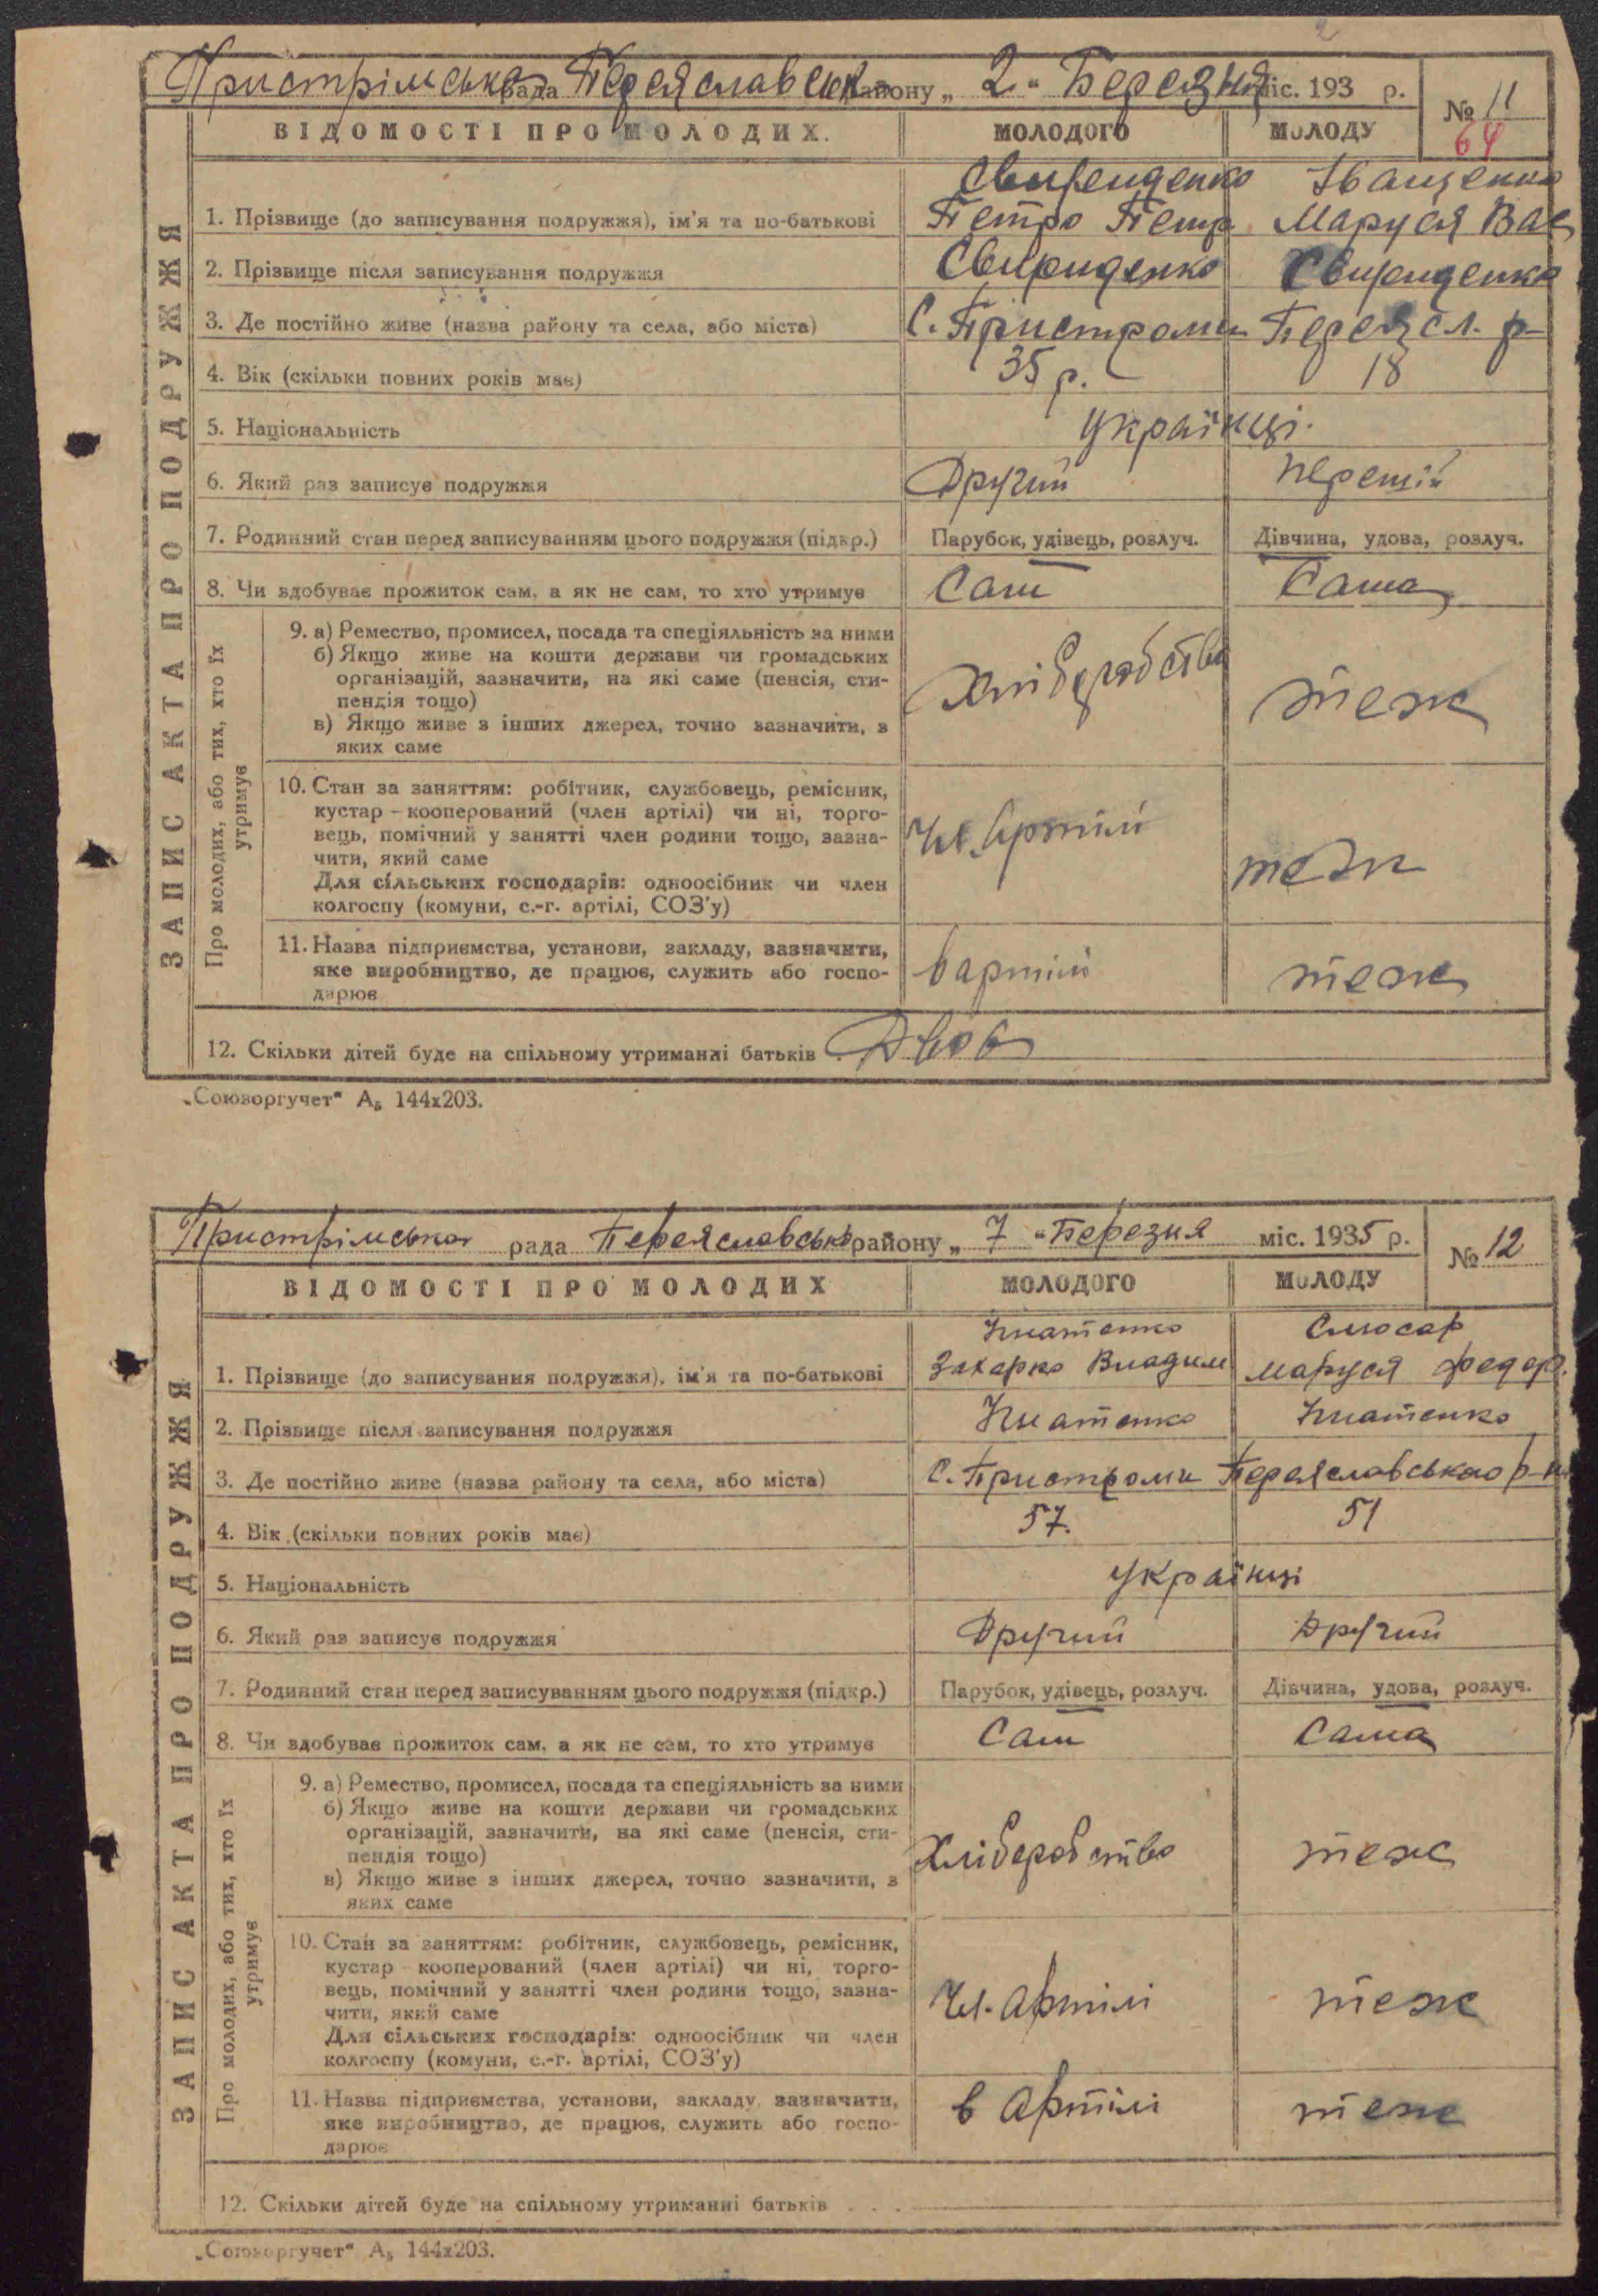 2
Пристрімська рада Переяславськ району „ 2 " Березня міс. 193 р.
№ 11
64
ВІДОМОСТІ ПРО МОЛОДИХ. МОЛОДОГО МОЛОДУ
ЗАПИС АКТА ПРО ПОДРУЖЖЯ
Свириденко Іващенко
1. Прізвище (до записування подружжя), ім'я та по-батькові Петро Петр Маруся Вас
2. Прізвище після записування подружжя Свириденко Свириденко
3. Де постійно живе (назва району та села, або міста) С. Пристроми Переясл. р-
4. Вік (скільки повних років має) 35 р. 18
5. Національність українці.
6. Який раз записує подружжя Другий перший
7. Родинний стан перед записуванням цього подружжя (підкр.) Парубок, удівець, розлуч. Дівчина, удова, розлуч.
8. Чи здобуває прожиток сам, а як не сам, то хто утримує Сам Сама
Про молодих, або тих, хто їх утримує
9. а) Ремество, промисел, посада та спеціяльність за ними
б) Якщо живе на кошти держави чи громадських
організацій, зазначити, на які саме (пенсія, сти-
пендія тощо)
в) Якщо живе з інших джерел, точно зазначити, з
яких саме
Хліборобство теж
10. Стан за заняттям: робітник, службовець, ремісник,
кустар – кооперований (член артілі) чи ні, торго-
вець, помічний у занятті член родини тощо, зазна-
чити, який саме
Для сільських господарів: одноосібник чи член
колгоспу (комуни, с.-г. артілі, СОЗ'у)
Чл. Артілі теж
11. Назва підприємства, установи, закладу, зазначити,
яке виробництво, де працює, служить або госпо-
дарює
в артілі теж
12. Скільки дітей буде на спільному утриманні батьків . Двоє
„Союзоргучет" А₅ 144х203.
Пристрімська рада Переяславсько району „ 7 " Березня міс. 1935 р.
№ 12
ВІДОМОСТІ ПРО МОЛОДИХ МОЛОДОГО МОЛОДУ
ЗАПИС АКТА ПРО ПОДРУЖЖЯ
Гнатенко Слюсар
1. Прізвище (до записування подружжя), ім'я та по-батькові Захарко Владим маруся федор.
2. Прізвище після записування подружжя Гнатенко Гнатенко
3. Де постійно живе (назва району та села, або міста) С. Пристроми Переяславського р-н
4. Вік (скільки повних років має) 57. 51
5. Національність українці
6. Який раз записує подружжя Другий Другий
7. Родинний стан перед записуванням цього подружжя (підкр.) Парубок, удівець, розлуч. Дівчина, удова, розлуч.
8. Чи здобуває прожиток сам, а як не сам, то хто утримує Сам Сама
Про молодих, або тих, хто їх утримує
9. а) Ремество, промисел, посада та спеціяльність за ними
б) Якщо живе на кошти держави чи громадських
організацій, зазначити, на які саме (пенсія, сти-
пендія тощо)
в) Якщо живе з інших джерел, точно зазначити, з
яких саме
Хліборобство теж
10. Стан за заняттям: робітник, службовець, ремісник,
кустар – кооперований (член артілі) чи ні, торго-
вець, помічний у занятті член родини тощо, зазна-
чити, який саме
Для сільських господарів: одноосібник чи член
колгоспу (комуни, с.-г. артілі, СОЗ'у)
Чл. артілі теж
11. Назва підприємства, установи, закладу, зазначити,
яке виробництво, де працює, служить або госпо-
дарює
в артілі теж
12. Скільки дітей буде на спільному утриманні батьків . . .
„Союзоргучет" А₅ 144х203.